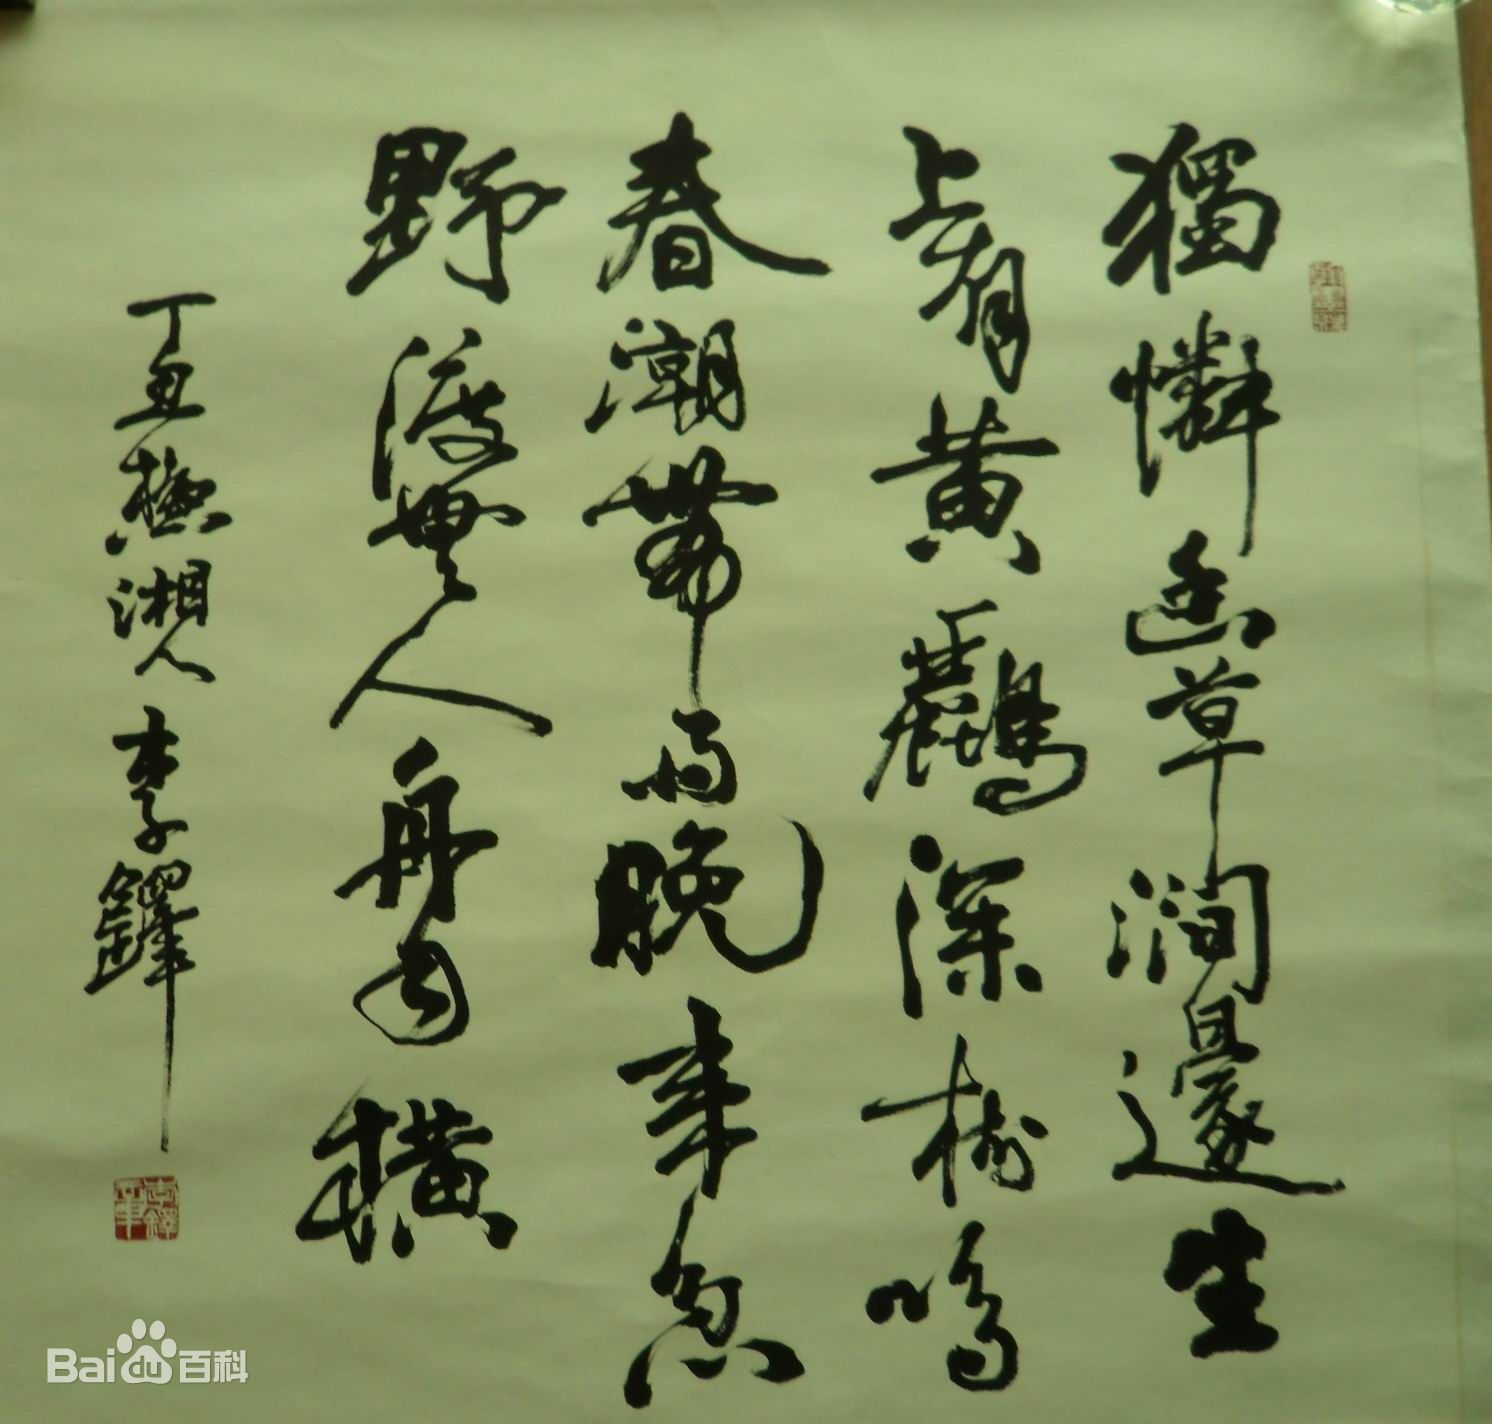 獨憐幽草澗邊生
上有黄鸝深樹鳴
春潮帶雨晚来急
野渡無人舟自横
丁丑 湘人李鐸
李鐸
Bai du 百科